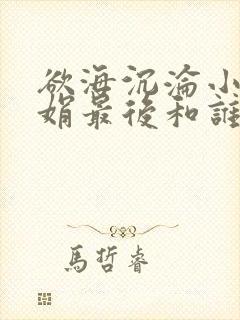 欲海沉淪小
娟最後和誰
馬哲睿